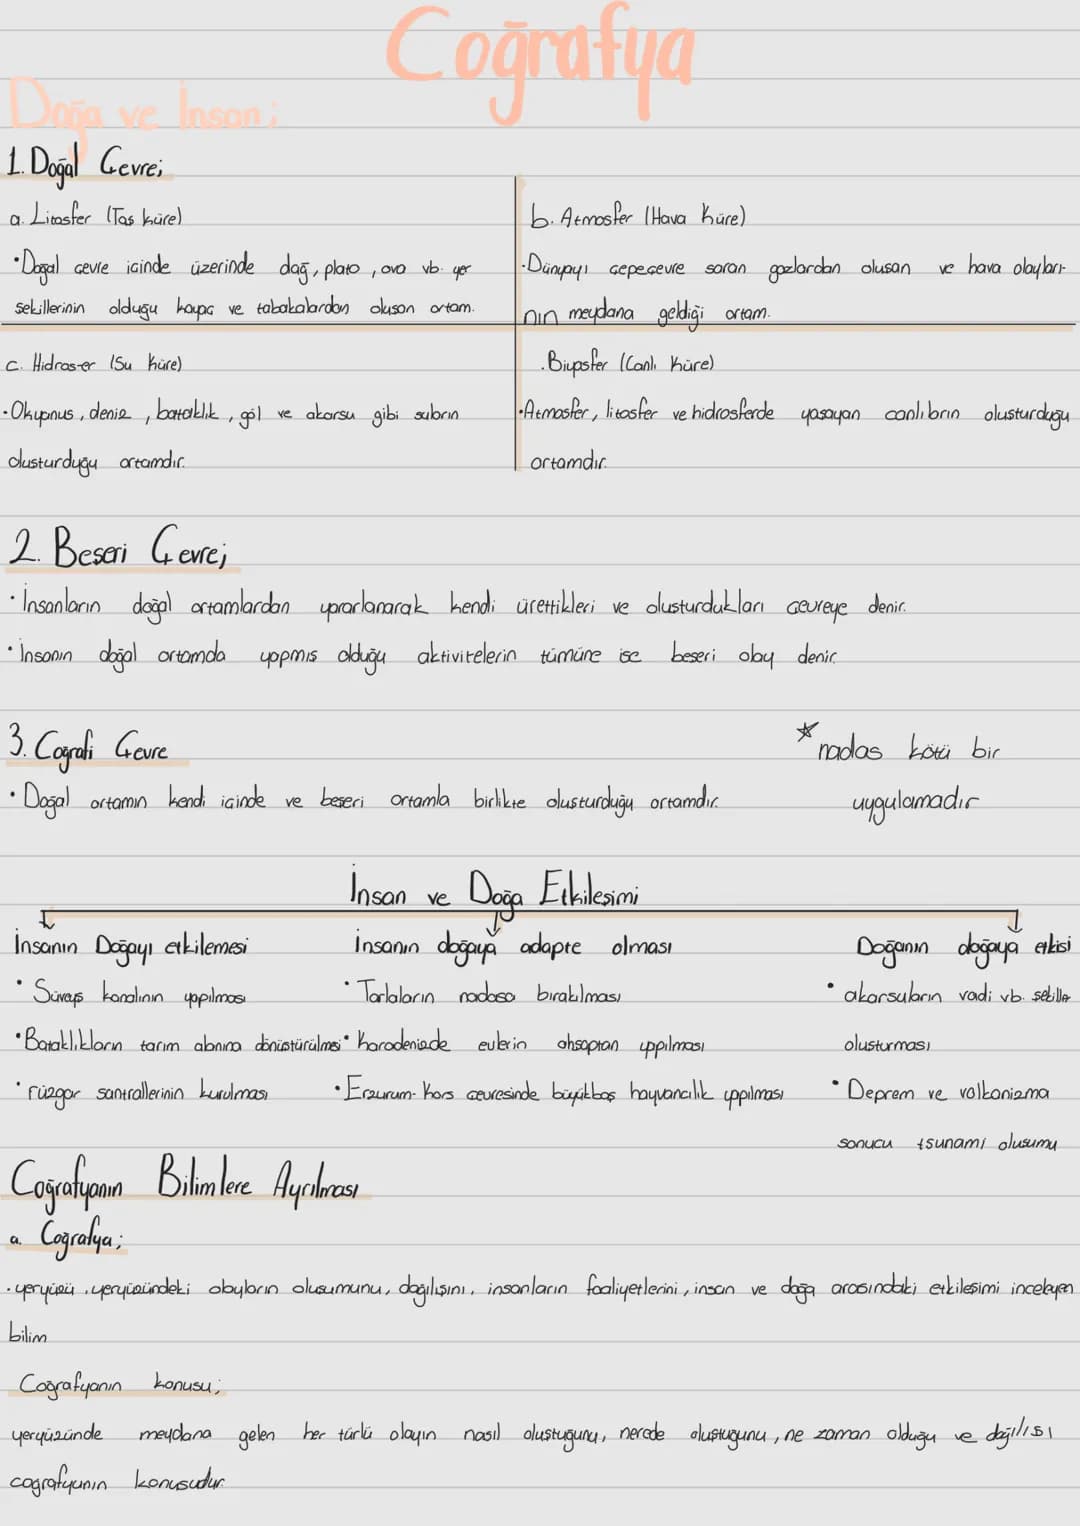 Coğrafya
Doğa ve İnsan;
1. Doğal Çevre;
a. Litosfer (Taş küre)
•Doğal çevre içinde üzerinde dağ, plato, ova vb. yer
şekillerinin olduğu kayaç ve tabakalardan oluşan ortam.
b. Atmosfer (Hava küre)
•Dünyayı çepeçevre saran gazlardan oluşan ve hava olayları-
nın meydana geldiği ortam.
c. Hidros-er (Su küre)
•Okyanus, deniz, bataklık, göl ve akarsu gibi suların
oluşturduğu ortamdır.
.Biyosfer (Canlı küre)
•Atmosfer, litosfer ve hidrosferde yaşayan canlıların oluşturduğu
ortamdır.
2. Beşeri Çevre;
•İnsanların doğal ortamlardan yararlanarak kendi ürettikleri ve oluşturdukları çevreye denir.
•İnsanın doğal ortamda yapmış olduğu aktivitelerin tümüne ise beşeri olay denir.
3. Coğrafi Çevre
•Doğal ortamın kendi içinde ve beşeri ortamla birlikte oluşturduğu ortamdır.
*nadas kötü bir
uygulamadır
İnsan ve Doğa Etkileşimi
İnsanın Doğayı etkilemesi
•Süveyş kanalının yapılması
•Bataklıkların tarım alanına dönüştürülmesi
•rüzgar santrallerinin kurulması
İnsanın doğaya adapte olması
•Tarlaların nadasa bırakılması
•Karadenizde evlerin ahşaptan yapılması
•Erzurum-Kars çevresinde büyükbaş hayvancılık yapılması
Doğanın doğaya etkisi
•akarsuların vadi vb. şekiller
oluşturması
•Deprem ve volkanizma
sonucu tsunami oluşumu
Coğrafyanın Bilimlere Ayrılması
a. Coğrafya;
•yeryüzü, yeryüzündeki olayların oluşumunu, dağılışını, insanların faaliyetlerini, insan ve doğa arasındaki etkileşimi inceleyen
bilim
Coğrafyanın konusu;
yeryüzünde meydana gelen her türlü olayın nasıl oluştuğunu, nerede oluştuğunu, ne zaman olduğu ve dağılışı
coğrafyanın konusudur.